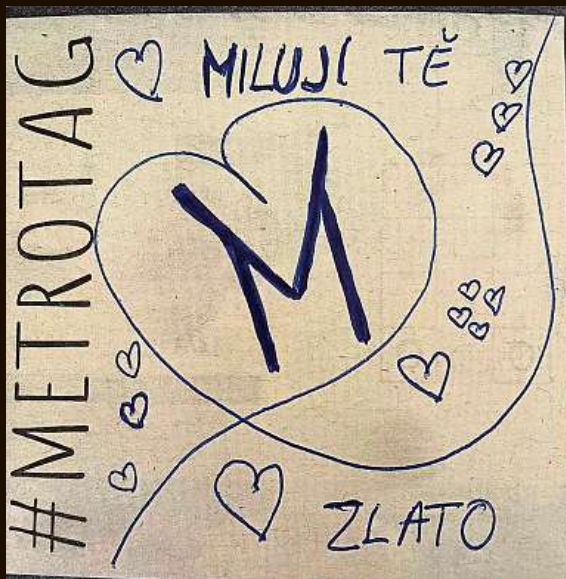 #METROTAG
MILUJI TĚ
M
ZLATO